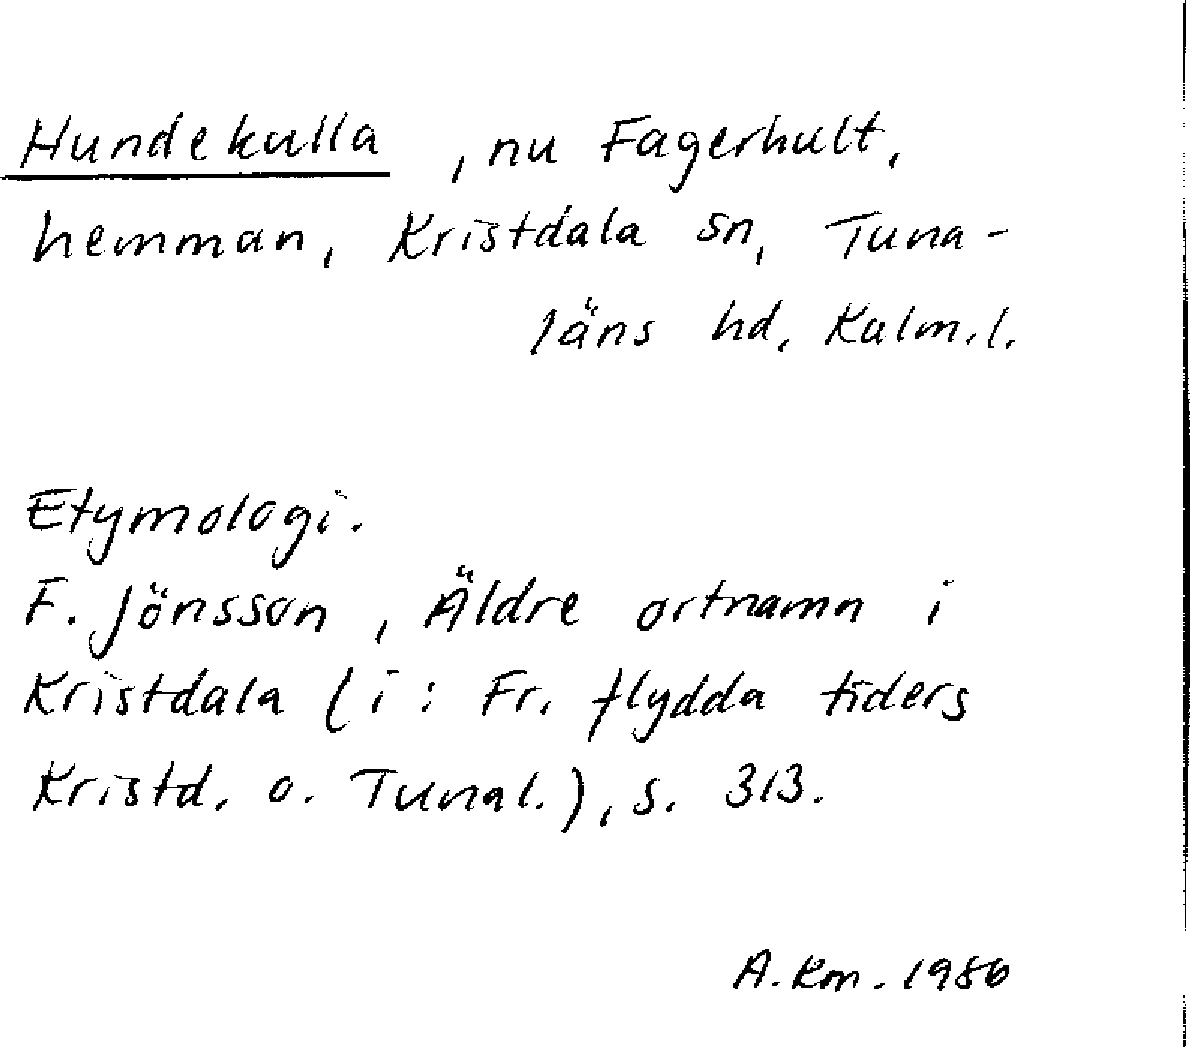 Hundekulla, nu Fagerhult,
hemman, Kristdala sn, Tuna-
läns hd, Kalm.l.
Etymologi.
F. Jönsson, Äldre ortnamn i
Kristdala (i: Fr. flydda tiders
Kristd. o. Tunal.), s. 313.
A. Km. 1986